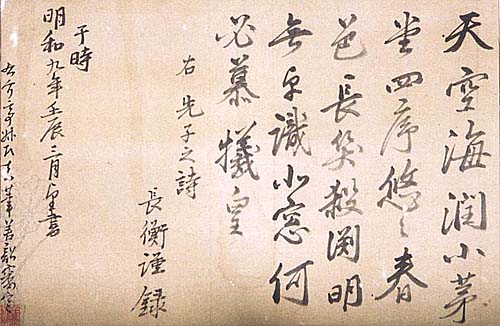 天空海濶小茅
堂四序悠々春
色長笑殺渕明
無卓識北窓何
必慕犠皇
右 先子之詩
長衡謹録
于時
明和九年壬辰三月書